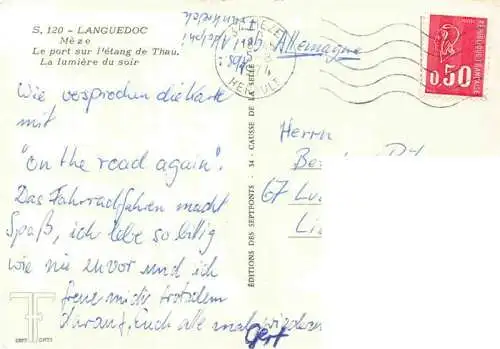 S. 120 - LANGUEDOC
Mèze
Le port sur l'étang de Thau.
La lumière du soir
Allemagne
HERAULT
REPUBLIQUE FRANÇAISE
0,50
Wie versprochen die Karte
mit
"on the road again".
Das Fahrradfahren macht
Spaß, ich lebe so billig
wie nie zuvor und ich
freue mich trotzdem
darauf, Euch alle mal wiederzu
Gert
ÉDITIONS DES SEPTFONTS - 34 - CAUSSE DE LA SELLE
Herrn
67 Lu